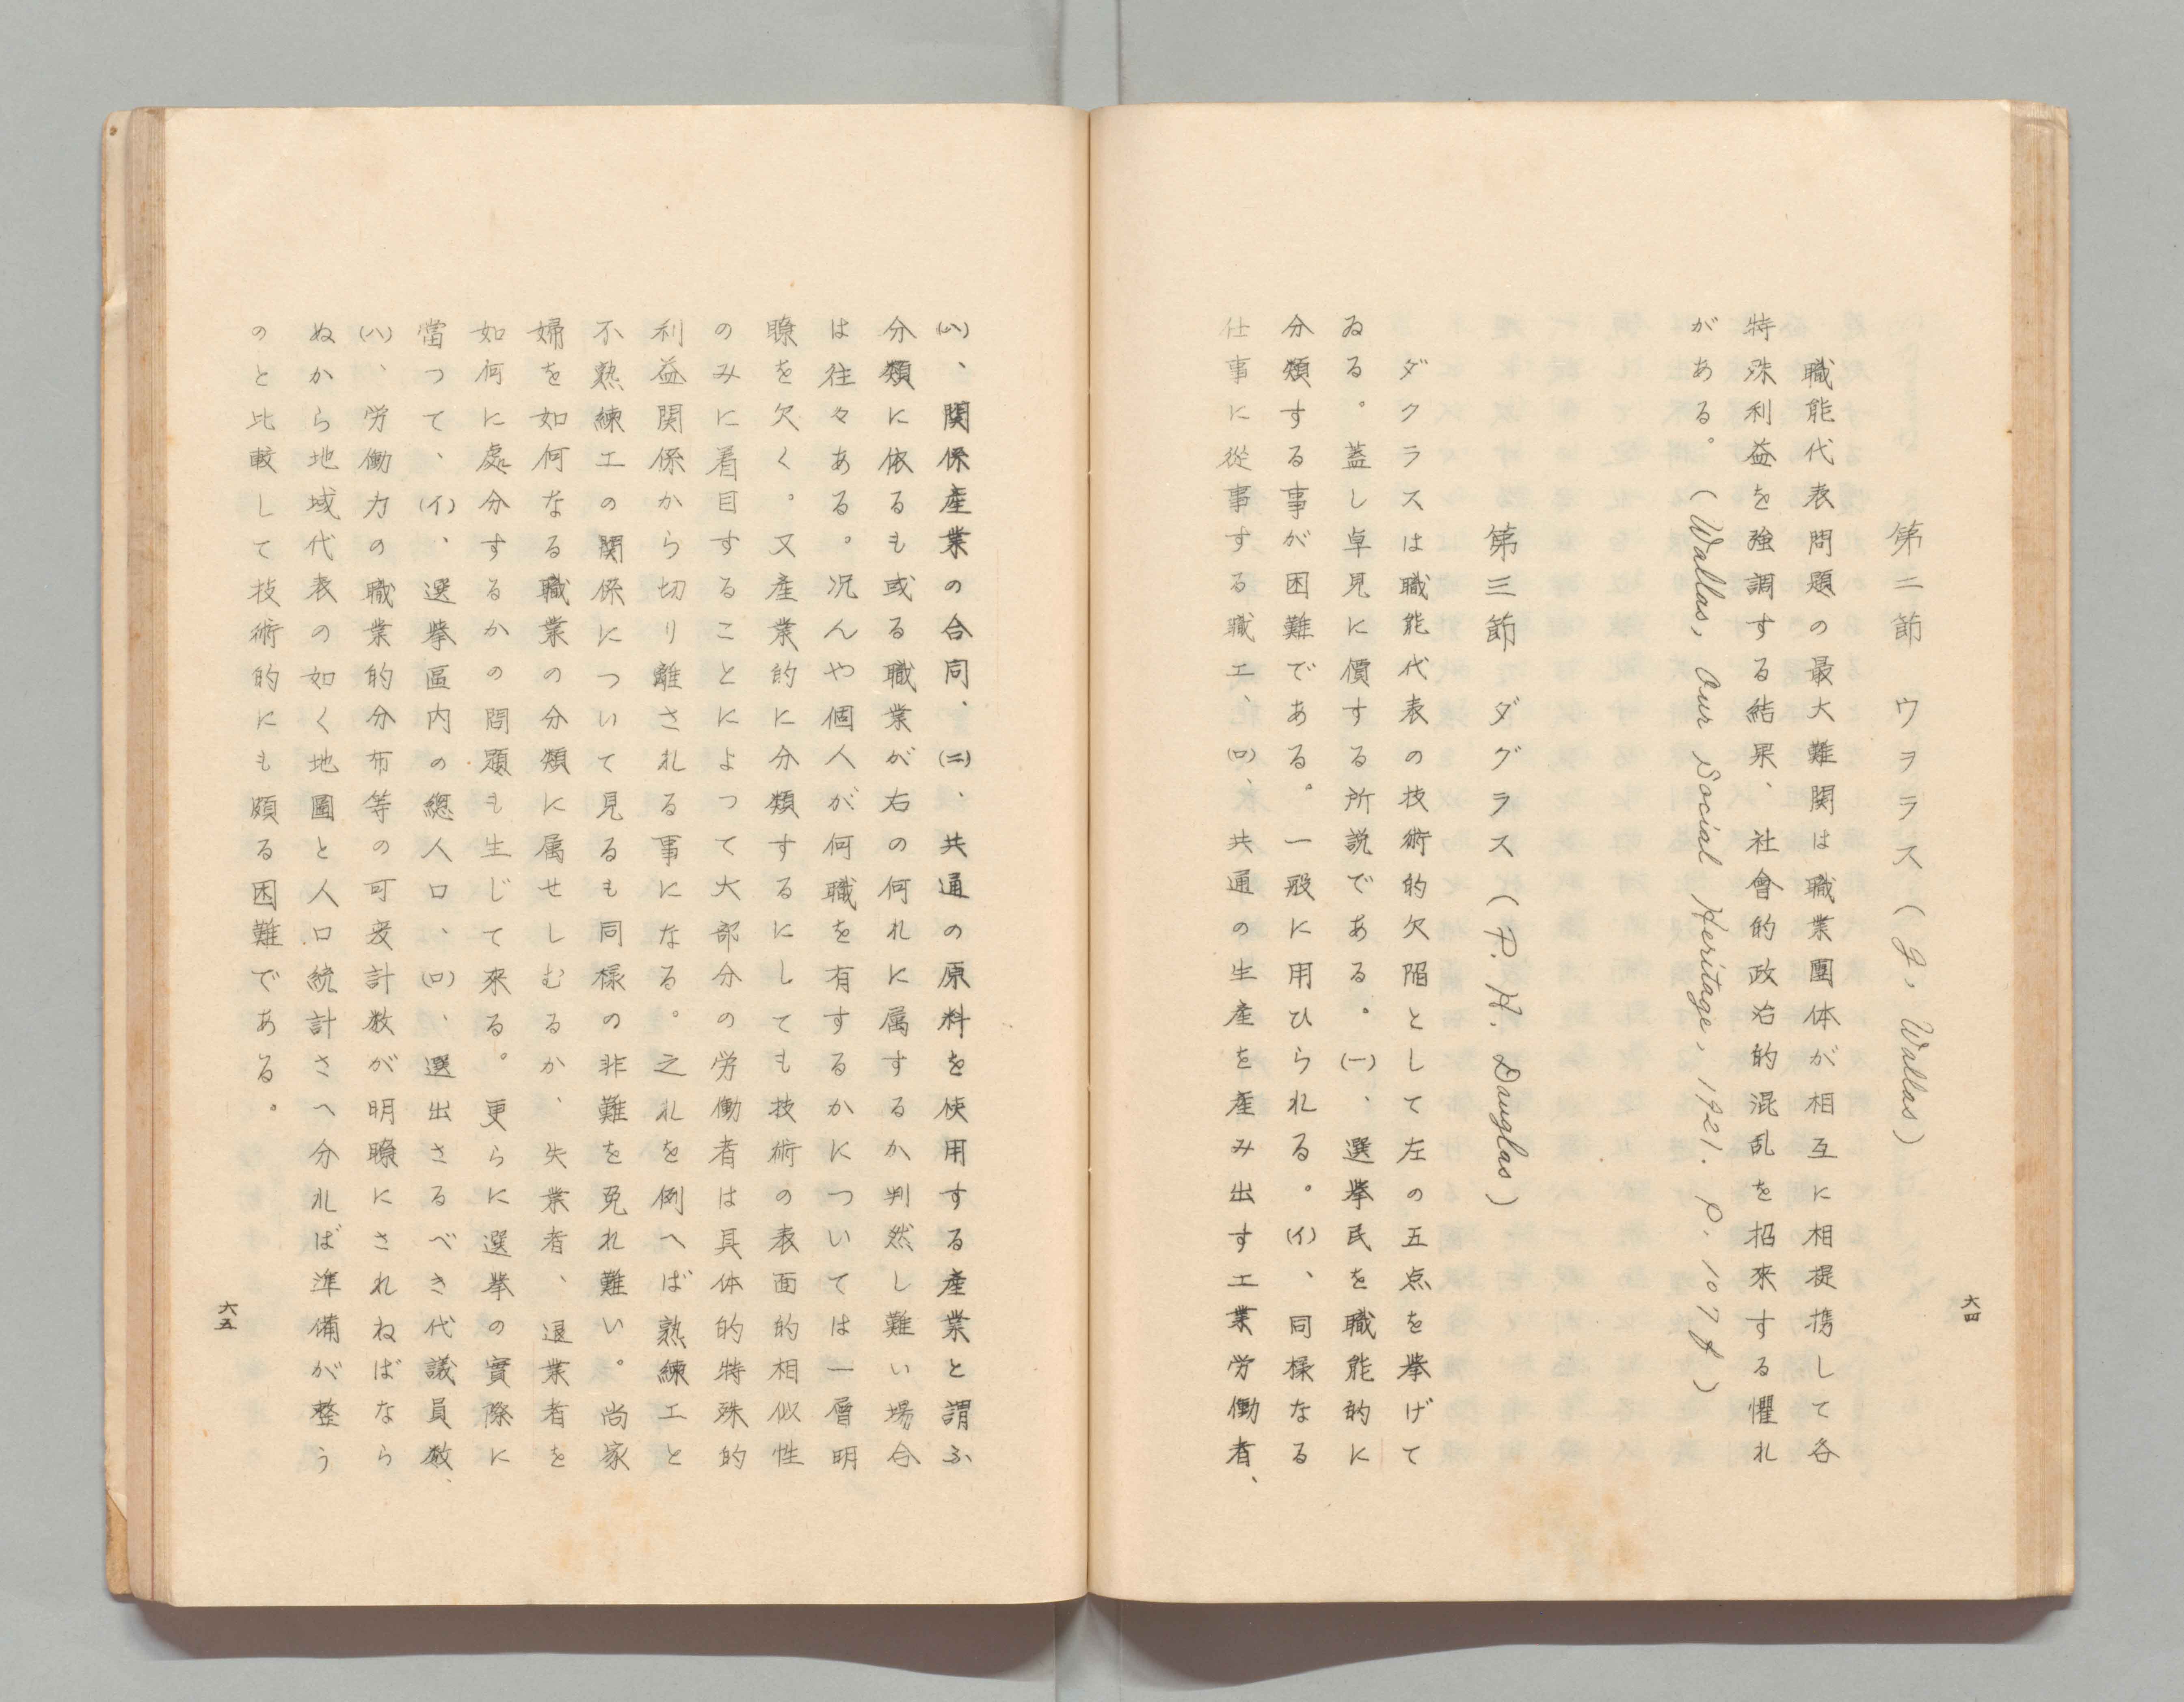 第二節　ウヲラス（G, Wallas）
職能代表問題の最大難関は職業團体が相互に相提携して各
特殊利益を強調する結果、社會的政治的混乱を招来する懼れ
がある。（Wallas, Our Social Heritage, 1921. P. 107 f）
第三節　ダグラス（P. H. Dauglas）
ダクラスは職能代表の技術的欠陥として左の五点を挙げて
ゐる。蓋し卓見に價する所説である。㈠、選挙民を職能的に
分類する事が困難である。一般に用ひられる。(イ)、同様なる
仕事に從事する職工、(ロ)、共通の生産を産み出す工業労働者、
六四
(ハ)、関係産業の合同、(ニ)、共通の原料を使用する産業と謂ふ
分類に依るも或る職業が右の何れに属するか判然し難い場合
は往々ある。況んや個人が何職を有するかについては一層明
瞭を欠く。又産業的に分類するにしても技術の表面的相似性
のみに着目することによつて大部分の労働者は具体的特殊的
利益関係から切り離される事になる。之れを例へば熟練工と
不熟練工の関係について見るも同様の非難を免れ難い。尚家
婦を如何なる職業の分類に属せしむるか、失業者、退業者を
如何に處分するかの問題も生じて来る。更らに選挙の實際に
當つて、(イ)、選挙區内の總人口、(ロ)、選出さるべき代議員数、
(ハ)、労働力の職業的分布等の可変計数が明瞭にされねばなら
ぬから地域代表の如く地圖と人口統計さへ分れば準備が整う
のと比較して技術的にも頗る困難である。
六五